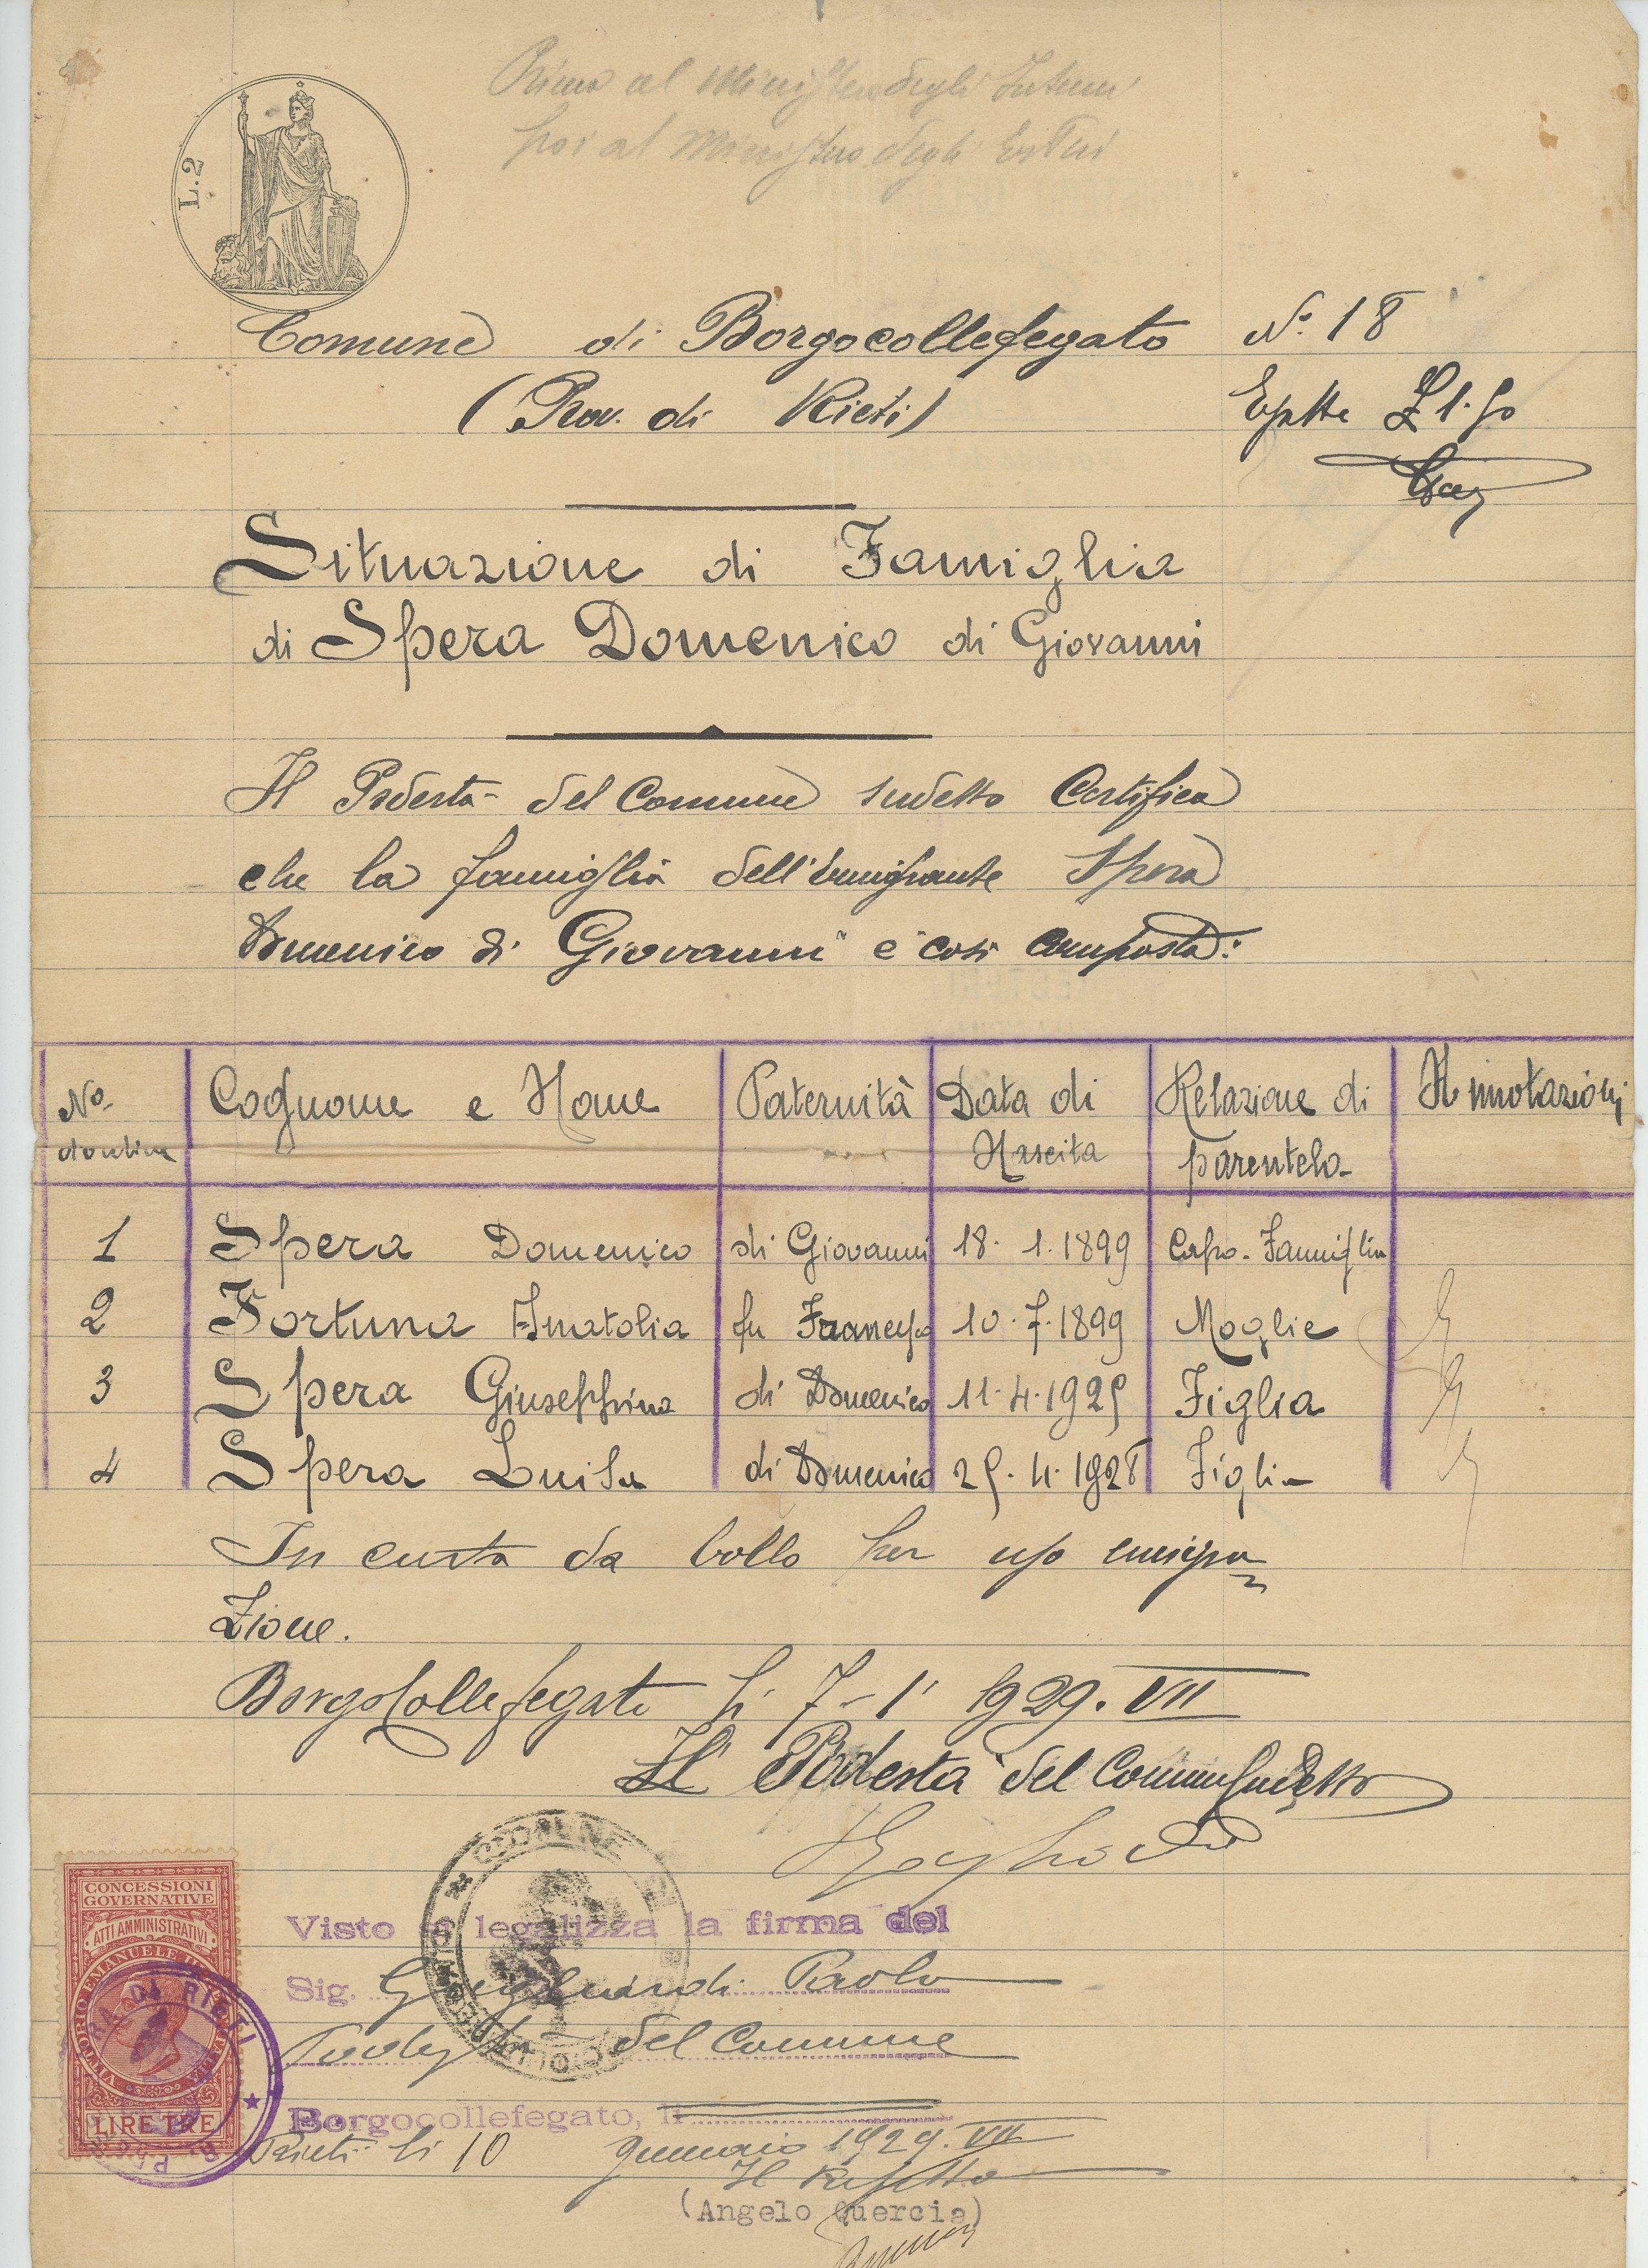 L. 2
Prima al Ministero degli Interni
poi al Ministero degli Esteri
Comune di Borgocollefegato
(Prov. di Rieti)
N. 18
Esatte £ 1.50
Situazione di Famiglia
di Spera Domenico di Giovanni
Il Podestà del Comune sudetto Certifica
che la famiglia dell'emigrante Spera
Domenico di Giovanni è così composta:
No. d'ordine Cognome e Nome Paternità Data di Nascita Relazione di parentela Annotazioni
1 Spera Domenico di Giovanni 18.1.1899 Capo-Famiglia
2 Fortuna Anatolia fu Francesco 10.7.1899 Moglie
3 Spera Giuseppina di Domenico 11.4.1925 Figlia
4 Spera Luisa di Domenico 25.4.1928 Figlia
In carta da bollo per uso emigra=
zione.
Borgocollefegato li 7-1 1929. VII
Il Podestà del Comune sudetto
COMUNE
Visto si legalizza la firma del
Sig. Paolo
Podestà del Comune
Borgocollefegato, li
Rieti li 10 Gennaio 1929. VII
Il Prefetto
(Angelo Quercia)
CONCESSIONI
GOVERNATIVE
ATTI AMMINISTRATIVI
VITTORIO EMANUELE III
LIRE TRE
DI RIETI